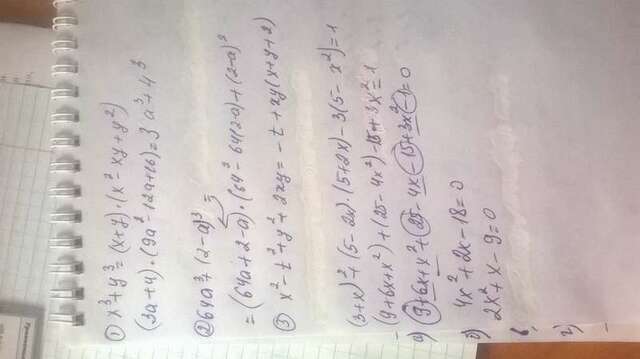 ① x³+y³=(x+y)·(x²-xy+y²)
(3a+4)·(9a²-12a+16)=3a³+4³
② 64a³+(2-a)³=
=(64a+2-a)·(64²-64(2-a)+(2-a)²
③ x²-t²+y²+2xy=-t+xy(x+y+2)
(3+x)²+(5-2x)·(5+2x)-3(5-x²)=1
(9+6x+x²)+(25-4x²)-15+3x²=1
9+6x+x²+25-4x-15+3x²-1=0
4x²+2x-18=0
2x²+x-9=0